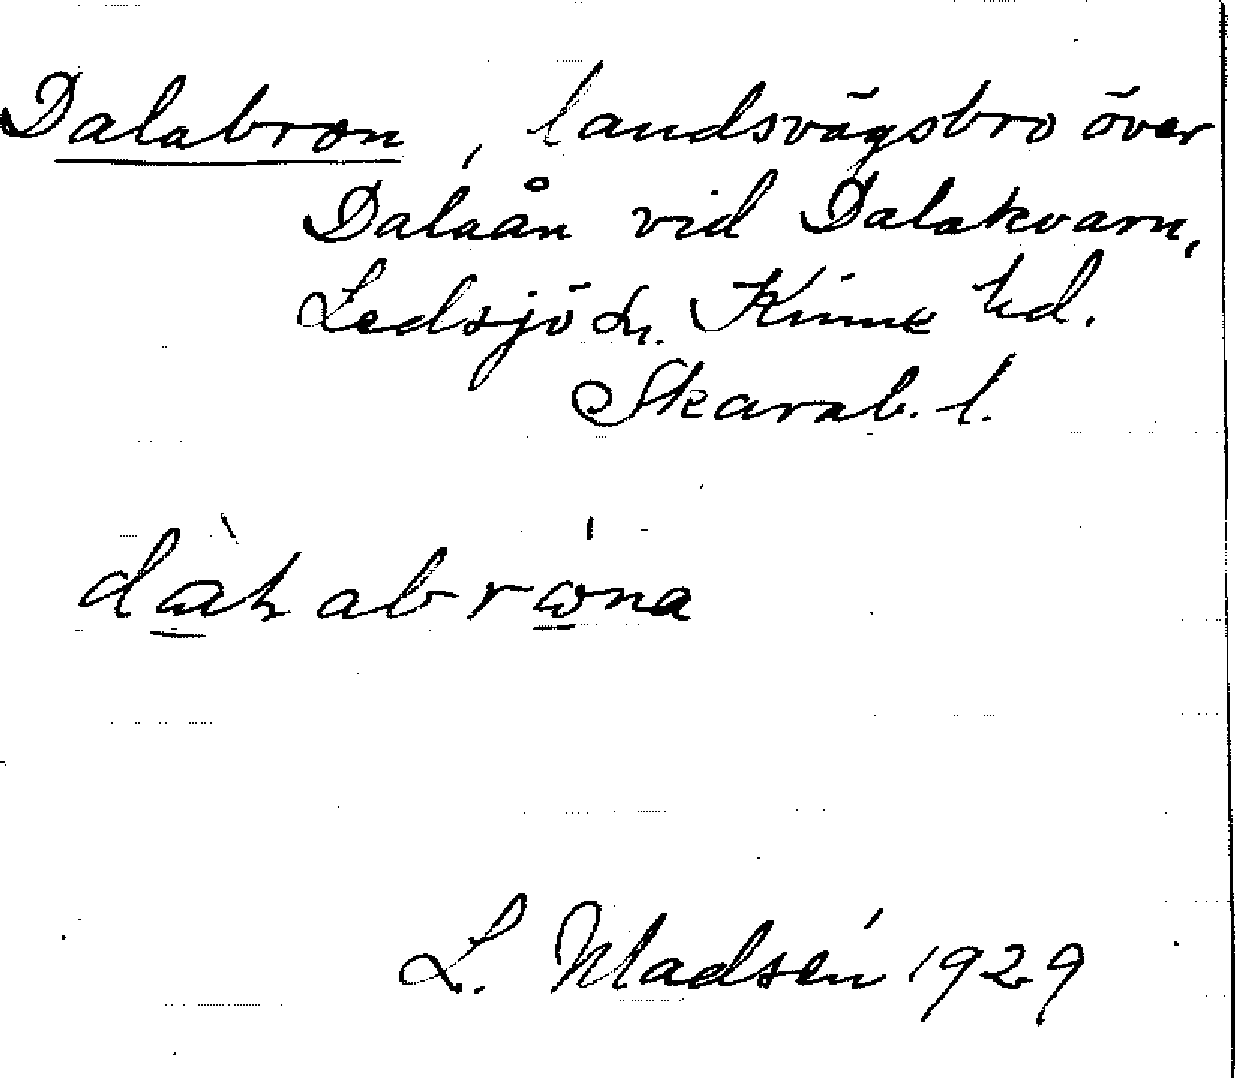 Dalabron, landsvägsbro över
Dalaån vid Dalakvarn,
Ledsjö sn. Kinne hd.
Skarab. l.
dàlabrωna
L. Madsén 1929